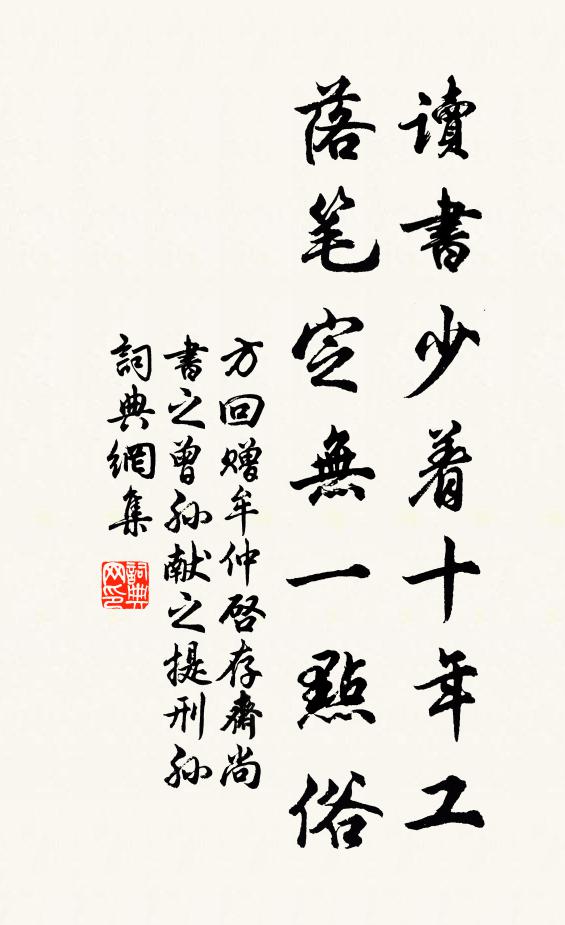 讀書少着十年工
落笔定無一點俗
方回赠牟仲启存齋尚
書之曾孙献之提刑孙
詞典網集
詞典网印